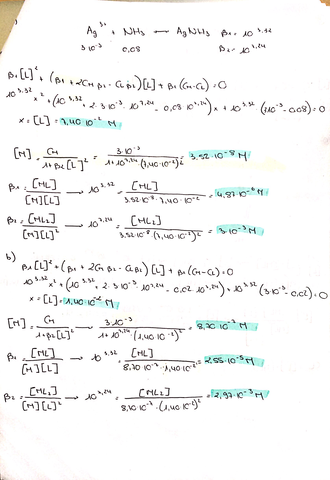 Ag⁺ + NH₃ ⟵ AgNH₃ β₁ = 10^3,32
3·10⁻³ 0,08 β₂ = 10^7,24
β₂[L]² + (β₁ + 2CM β₂ - CL β₂)[L] + β₁(CM-CL) = 0
10^3,32 x² + (10^3,32 + 2·3·10⁻³·10^7,24 - 0,08·10^7,24)x + 10^3,32 (3·10⁻³-0,08) = 0
x = [L] = 7,40·10⁻² M
[M] = CM / 1+β₂[L]² = 3·10⁻³ / 1+10^7,24·(7,40·10⁻²)² = 3.52·10⁻⁸ M
β₁ = [ML] / [M][L] → 10^3,32 = [ML] / 3.52·10⁻⁸·7,40·10⁻² =
β₂ = [ML₂] / [M][L]² → 10^7,24 = [ML₂] / 3.52·10⁻⁸·(7,40·10⁻²)² = 3·10⁻³ M
b)
β₁[L]² + (β₁ + 2CM β₂ - CL β₂)[L] + β₁(CM-CL) = 0
10^3,32 x² + (10^3,32 + 2·3·10⁻³·10^7,24 - 0,02·10^7,24) + 10^3,32 (3·10⁻³-0,02) = 0
x = [L] = 1,40·10⁻² M
[M] = CM / 1+β₂[L]² → 3·10⁻³ / 1+10^7,24·(1,40·10⁻²)² = 8,70·10⁻⁷ M
β₁ = [ML] / [M][L] → 10^3,32 = [ML] / 8,70·10⁻⁷·1,40·10⁻² = 2,55·10⁻⁵ M
β₂ = [ML₂] / [M][L]² → 10^7,24 = [ML₂] / 8,70·10⁻⁷·(1,40·10⁻²)² = 2,97·10⁻³ M